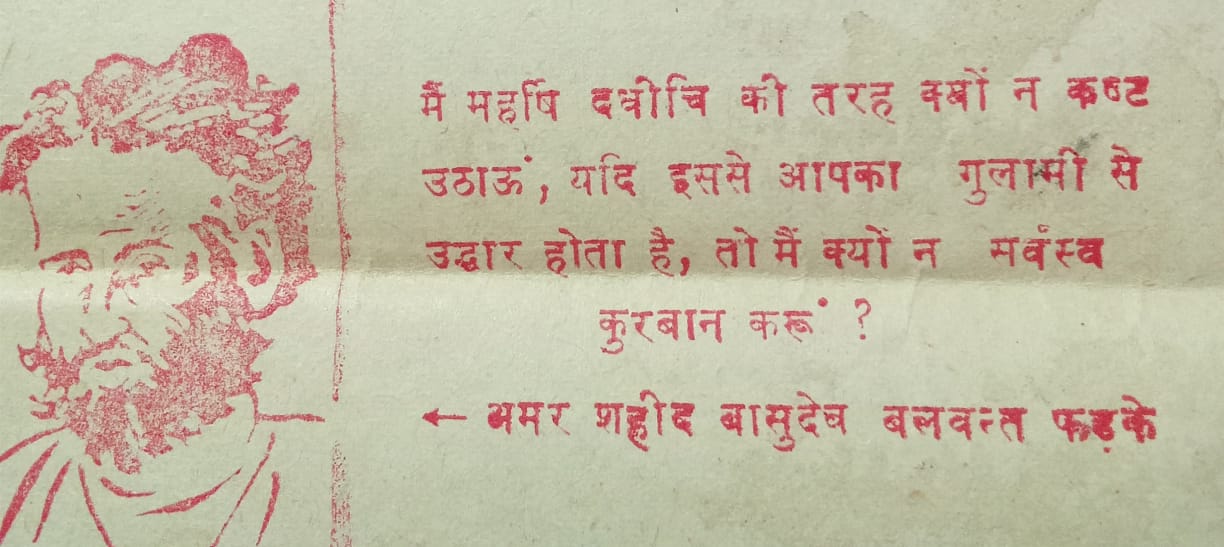 मैं महर्षि दधीचि की तरह क्यों न कष्ट
उठाऊं, यदि इससे आपका गुलामी से
उद्धार होता है, तो मैं क्यों न सर्वस्व
कुरबान करूं ?
← अमर शहीद बासुदेव बलवन्त फड़के